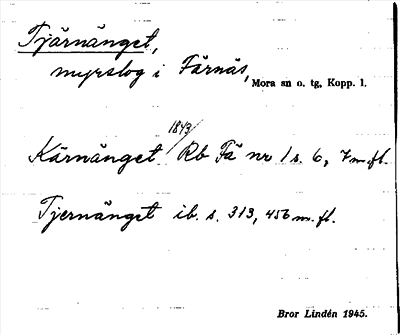 Tjärnänget,
myrslog i Färnäs, Mora sn o. tg, Kopp. l.
Kärnänget 1843/ Rb Fä nr 1 s. 6, 7 m.fl.
Tjernänget ib. s. 313, 456 m. fl.
Bror Lindén 1945.